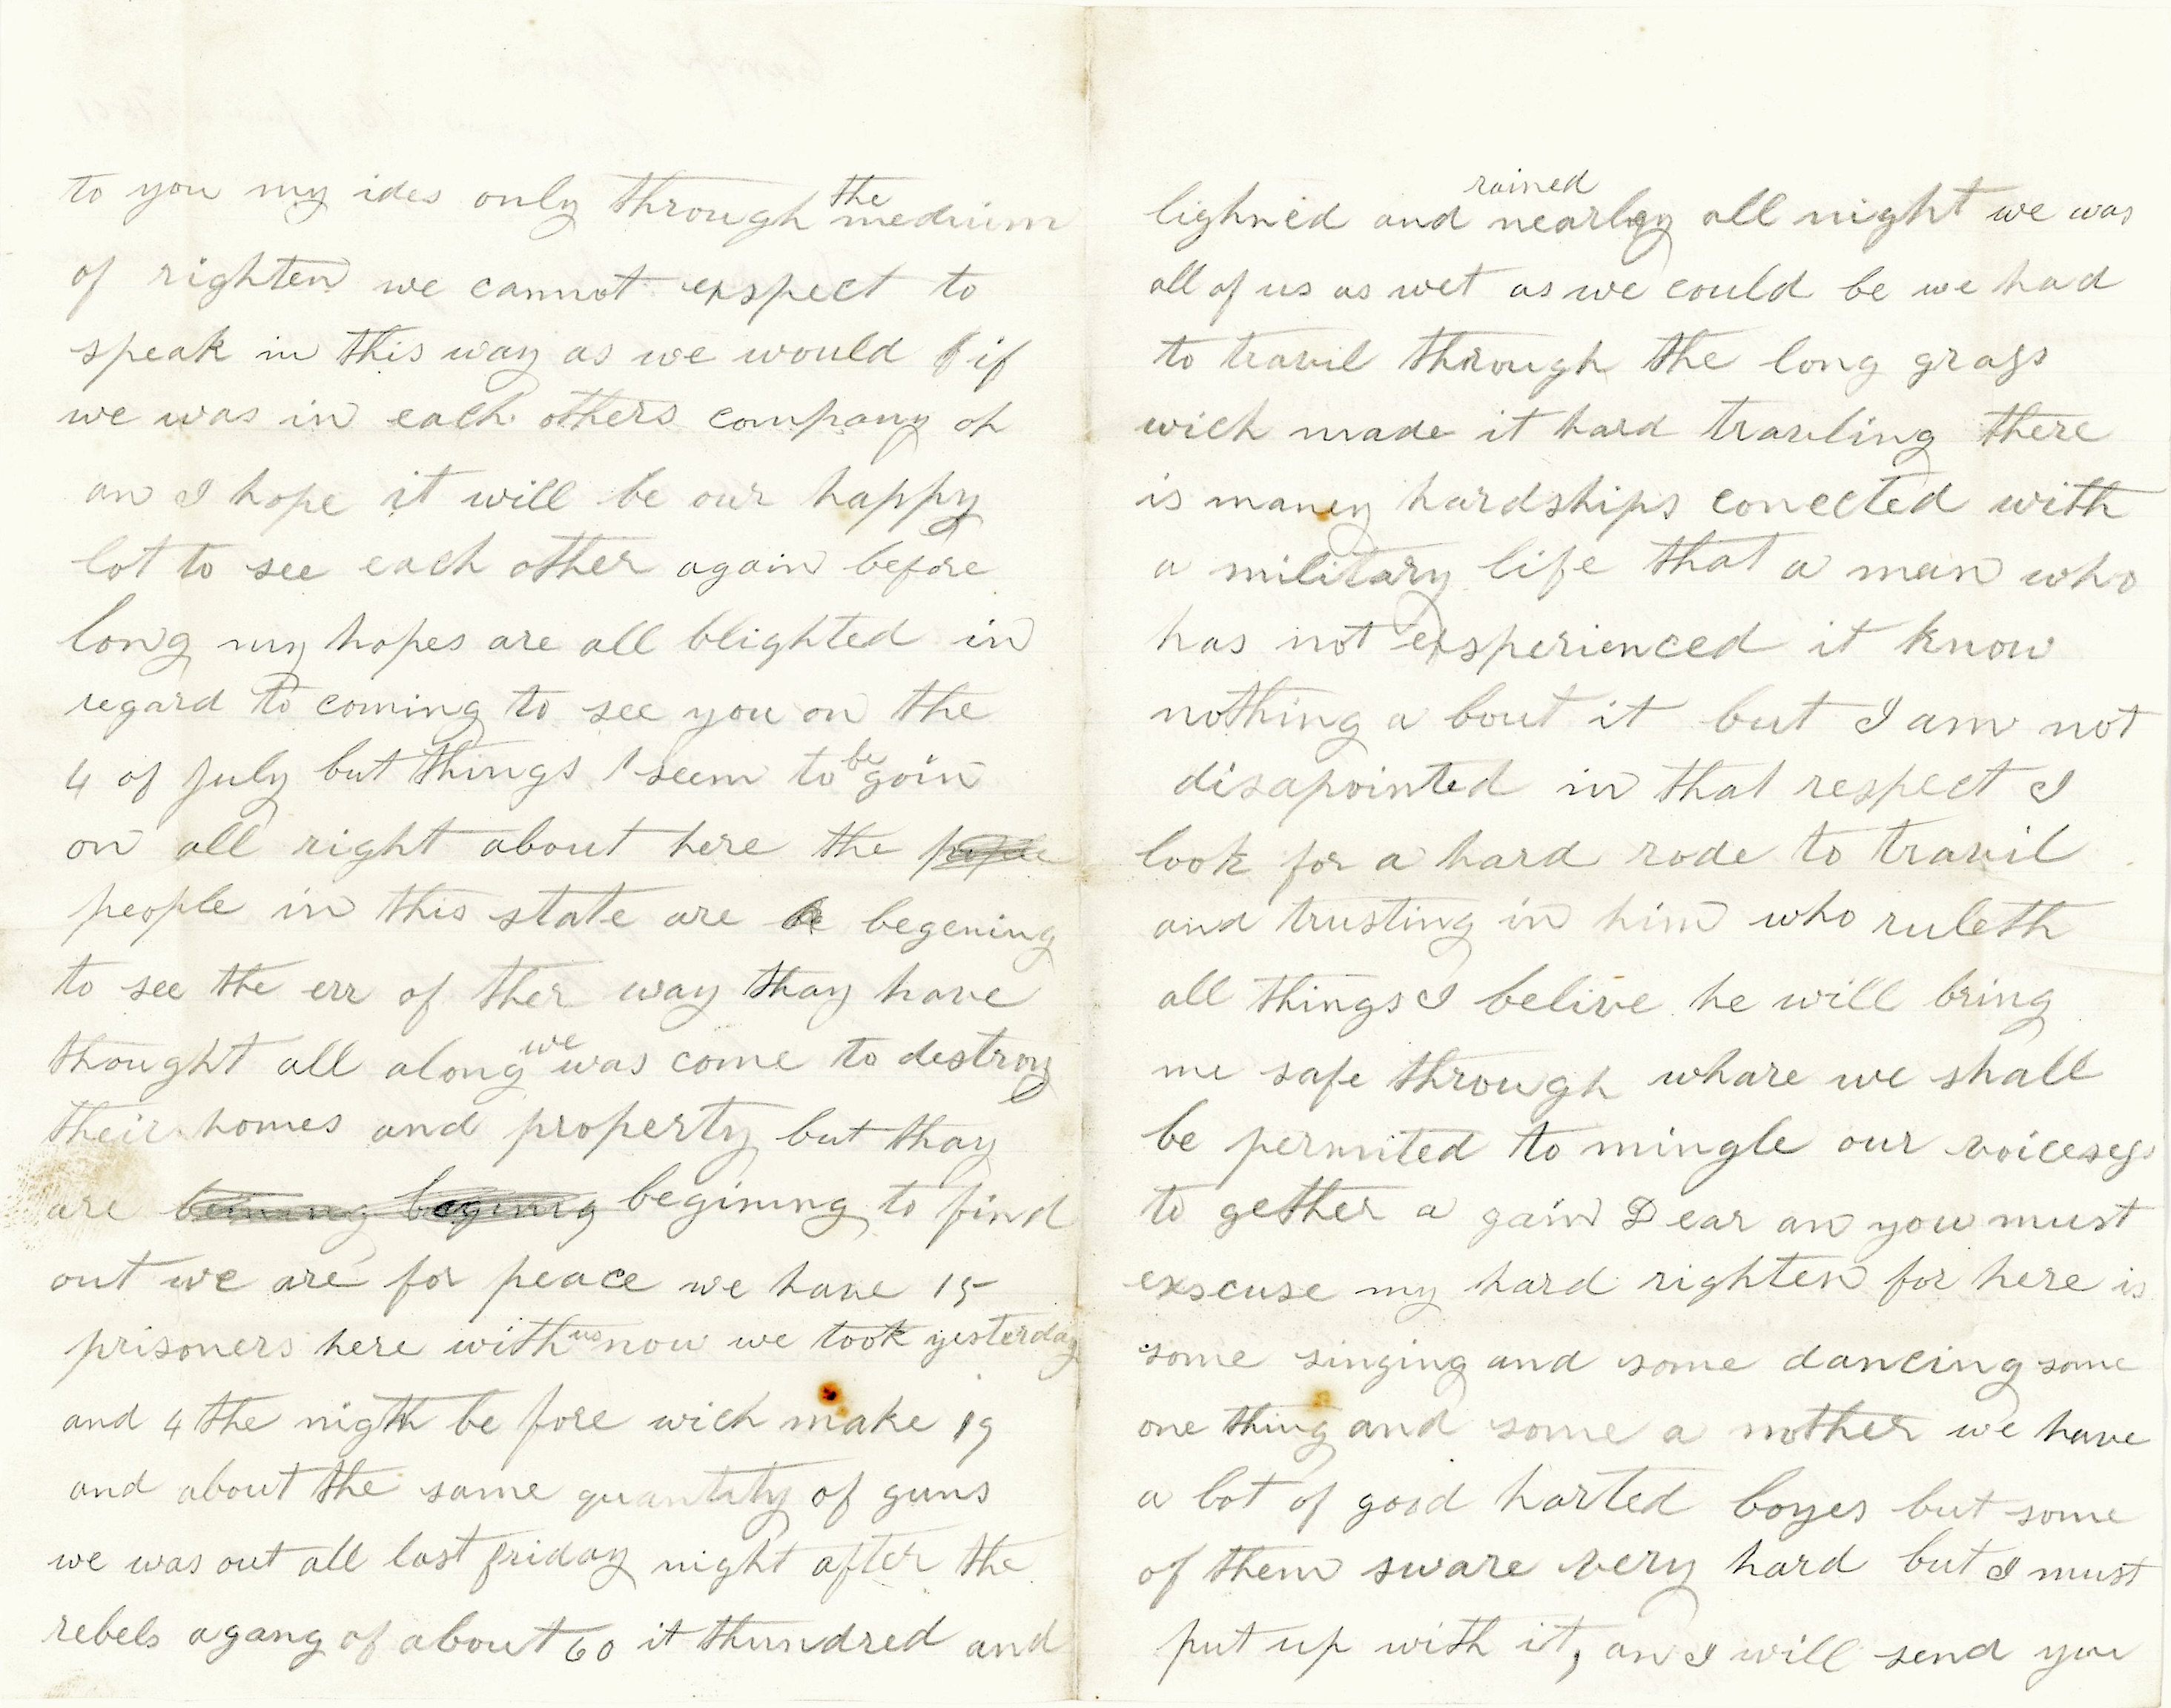 to you my ides only through the medium
of righten we cannot exspect to
speak in this way as we would if
we was in each others company oh
an I hope it will be our happy
lot to see each other again before
long my hopes are all blighted in
regard to coming to see you on the
4 of July but things seem to be goin
on all right about here the
people in this state are be begening
to see the err of ther way thay have
thought all along we was come to destroy
their homes and property but thay
are begining to find
out we are for peace we have 15
prisoners here with us now we took yesterday
and 4 the nigth be fore wich make 19
and about the same quantity of guns
we was out all last friday night after the
rebels a gang of about 60 it thundred and
lighned and rained nearley all night we was
all of us as wet as we could be we had
to travil through the long grass
wich made it hard travling there
is maney hardships conected with
a military life that a man who
has not exsperienced it know
nothing a bout it but I am not
disapointed in that respect I
look for a hard rode to travil
and trusting in him who ruleth
all things I belive he will bring
me safe through whare we shall
be permited to mingle our voiceses
to gether a gain Dear an you must
exscuse my hard righten for here is
some singing and some dancing some
one thing and some a nother we have
a lot of good harted boyes but some
of them sware very hard but I must
put up with it, an I will send you